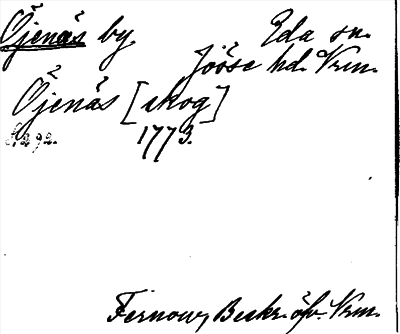 Öjenäs by Eda sn.
Jösse hd. Vrm.
Öjenäs [skog]
1773.
Fernow, Beskr. öfv. Vrm.